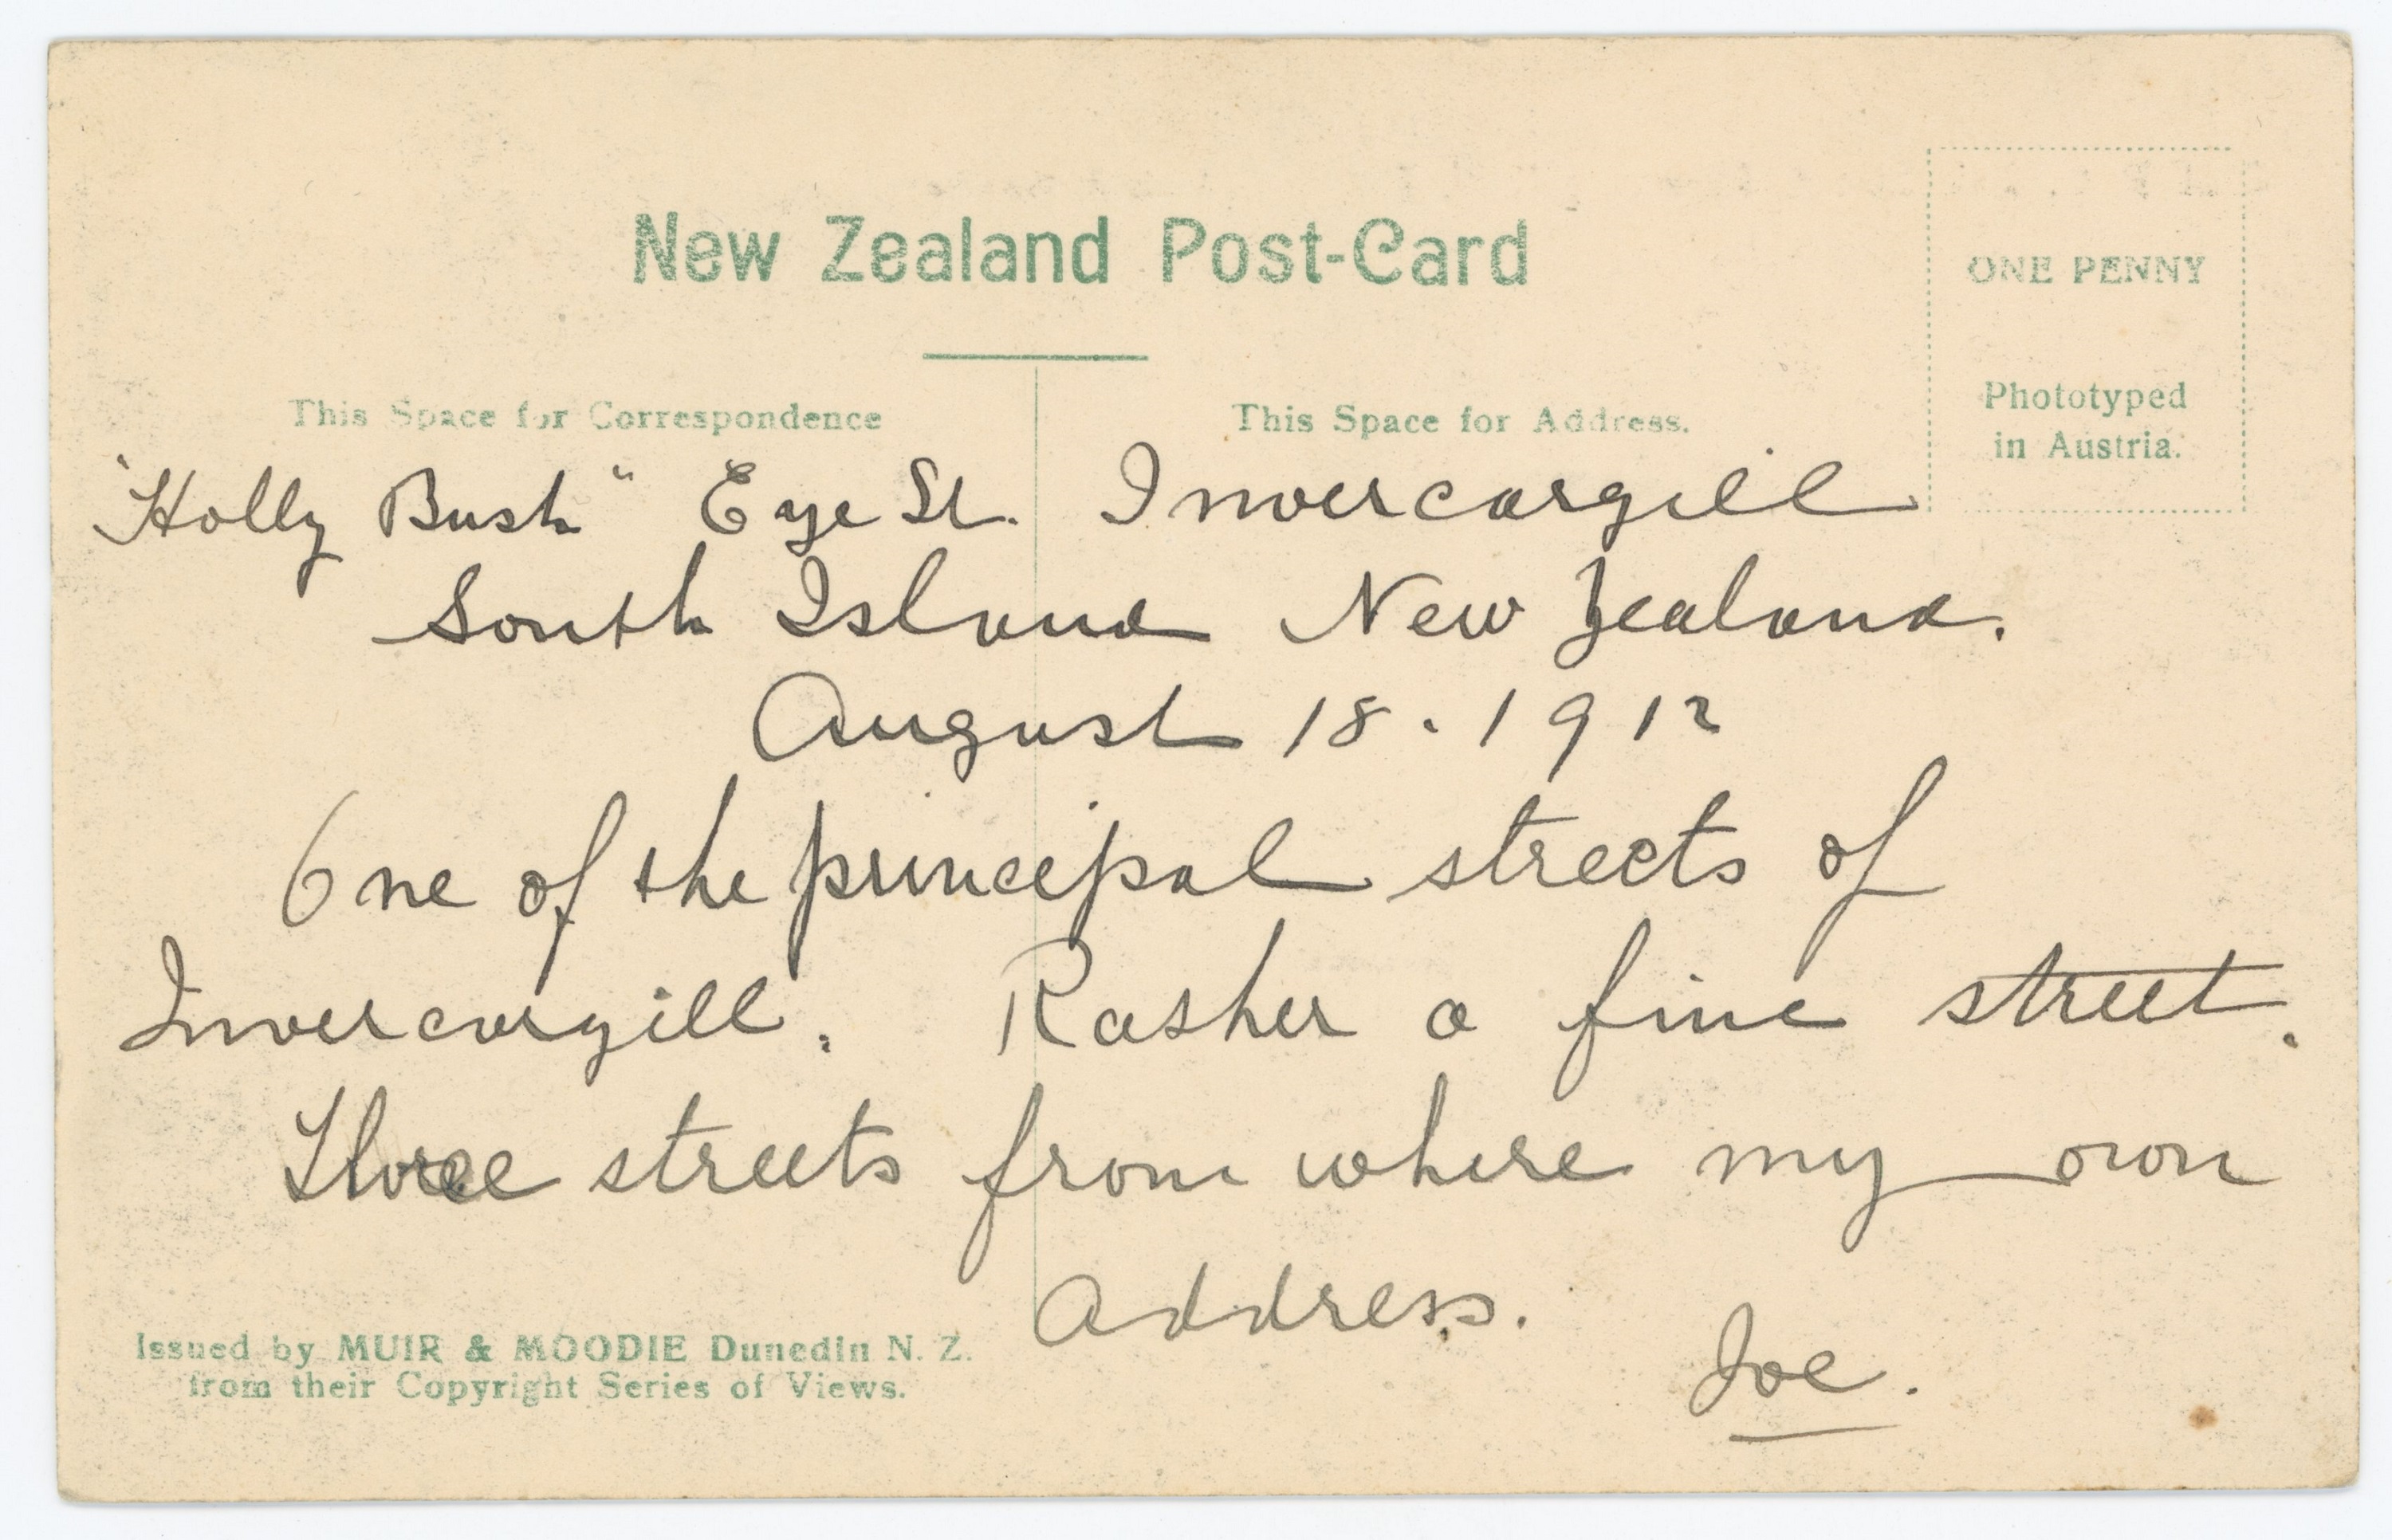 New Zealand Post-Card
ONE PENNY
Phototyped
in Austria.
This Space for Correspondence
This Space for Address.
"Holly Bush" Eye St. Invercargill
South Island New Zealand.
August 18. 1912
One of the principal streets of
Invercargill. Rasher a fine street.
Three streets from where my own
address.
Joe.
Issued by MUIR & MOODIE Dunedin N. Z.
from their Copyright Series of Views.